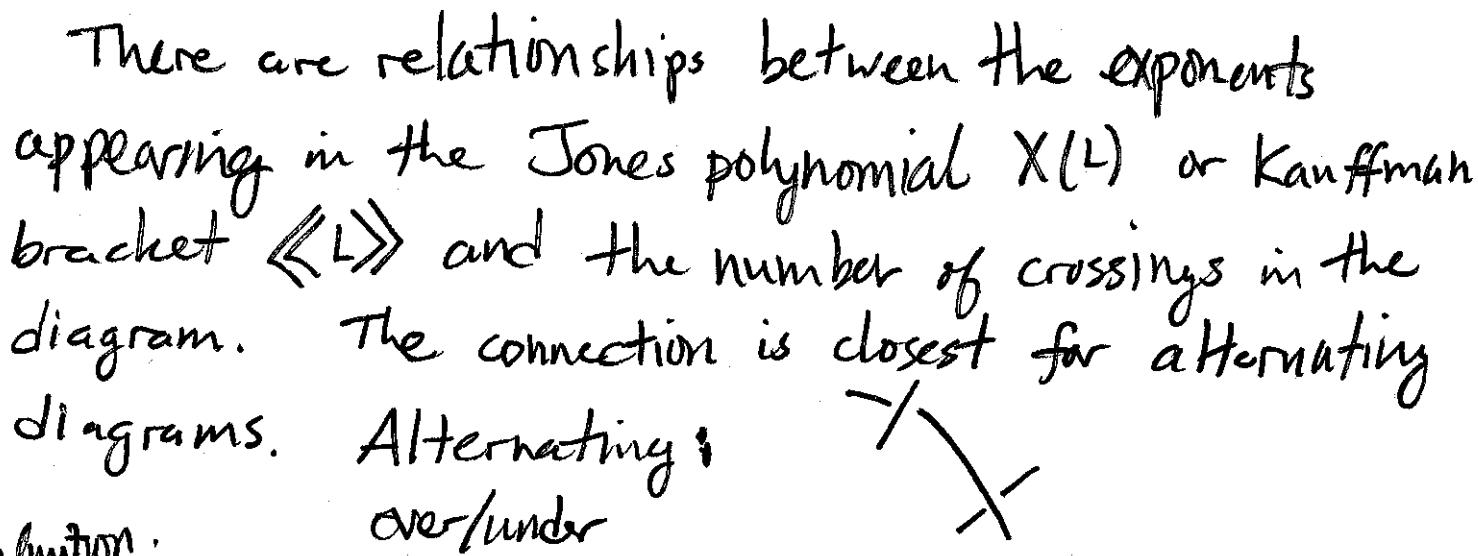 There are relationships between the exponents
appearing in the Jones polynomial X(L) or Kauffman
bracket ⟪L⟫ and the number of crossings in the
diagram. The connection is closest for alternating
diagrams. Alternating:
over/under